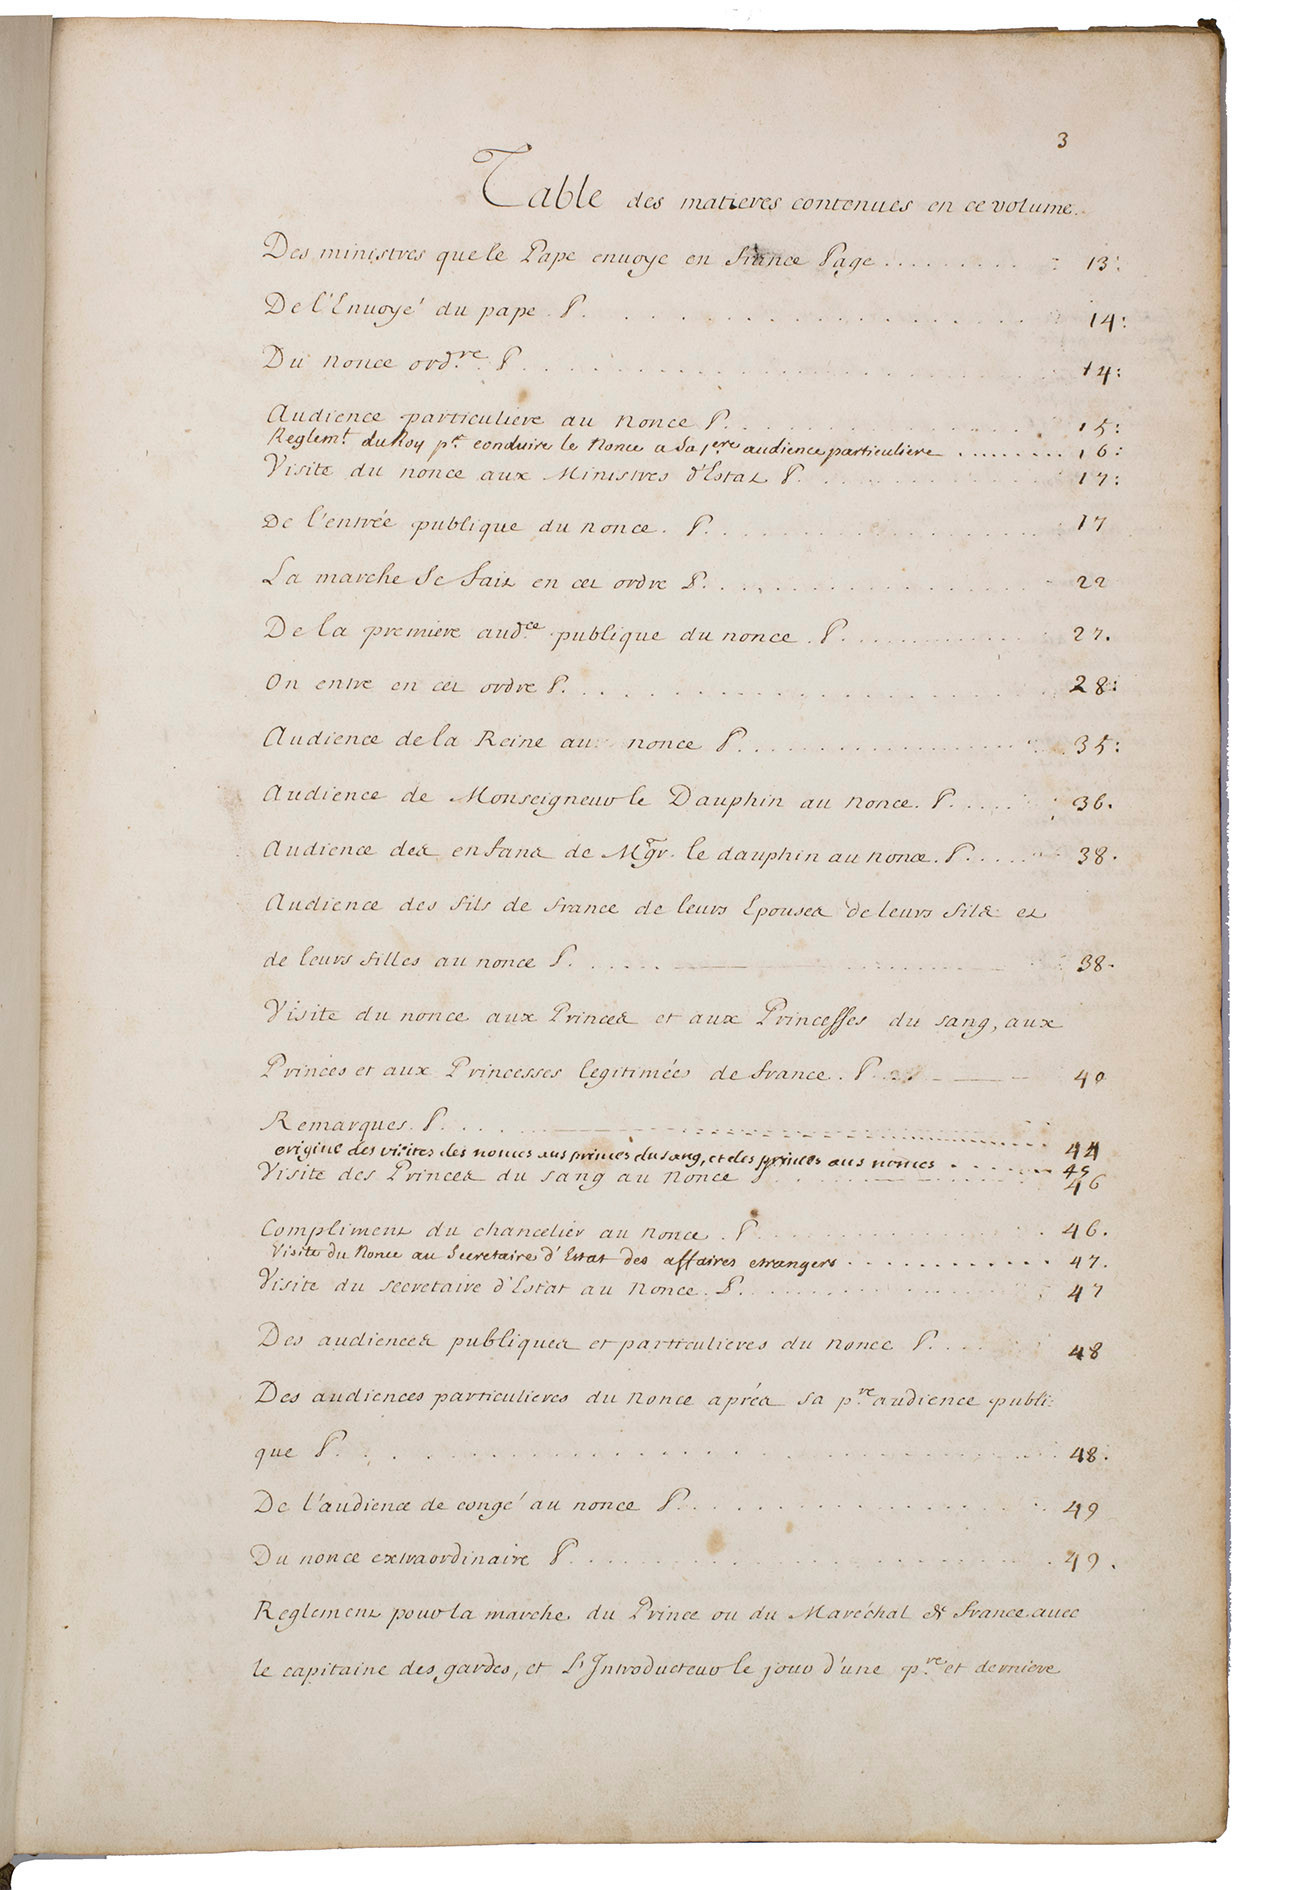 3
Table des matieres contenues en ce volume.
Des ministres que le Pape envoye en france Page . . . . . . . . . : 13:
De l'Envoyé du pape. P. . . . . . . . . . . . . . . . 14:
Du nonce ord.re P. . . . . . . . . . . . . . . . . . 14:
Audience particuliere au nonce P. . . . . . . . . . . . 15:
Reglemt. du Roy pr. conduire le Nonce a Sa 1ere audience particuliere . . . . . . . . . 16:
Visite du nonce aux Ministres d'Estat P. . . . . . . . . . 17:
De l'entrée publique du nonce. P. . . . . . . . . . . . . 17
La marche se fait en cet ordre P. . . . . . . . . . . . . 22
De la premiere aud.ce publique du nonce. P. . . . . . . . . . 27.
On entre en cet ordre P. . . . . . . . . . . . . . . . 28:
Audience de la Reine au nonce P. . . . . . . . . . . . . 35:
Audience de Monseigneur le Dauphin au nonce. P. . . . . . 36.
Audience des enfans de Mgr. le dauphin au nonce. P. . . . . . 38.
Audience des fils de france de leurs Epouses de leurs fils et
de leurs filles au nonce P. . . . . . . . . . . . . . 38.
Visite du nonce aux Princes et aux Princesses du sang, aux
Princes et aux Princesses legitimées de france. P. 40
Remarques. P. . . . . . . . . . . . . . . . 44
origine des visites des nonces aus princes du sang, et des princes aus nonces . . . . . . 45
Visite des Princes du sang au nonce P . . . . . . . . . 46
Compliment du chancelier au nonce. P. . . . . . . . . . 46.
Visite du Nonce au Secretaire d'Estat des affaires etrangers . . . . . . . . . . . . 47.
Visite du secretaire d'Estat au nonce. P. . . . . . . . . . 47
Des audiences publiques et particulieres du nonce P. . . . 48
Des audiences particulieres du nonce aprés sa p.re audience publi:
que P. . . . . . . . . . . . . . . . . . . 48.
De l'audience de congé au nonce P. . . . . . . . . . . . . 49
Du nonce extraordinaire P. . . . . . . . . . . . . . . 49.
Reglement pour la marche du Prince ou du Maréchal de france avec
le capitaine des gardes, et L'Introducteur le jour d'une p.re et derniere